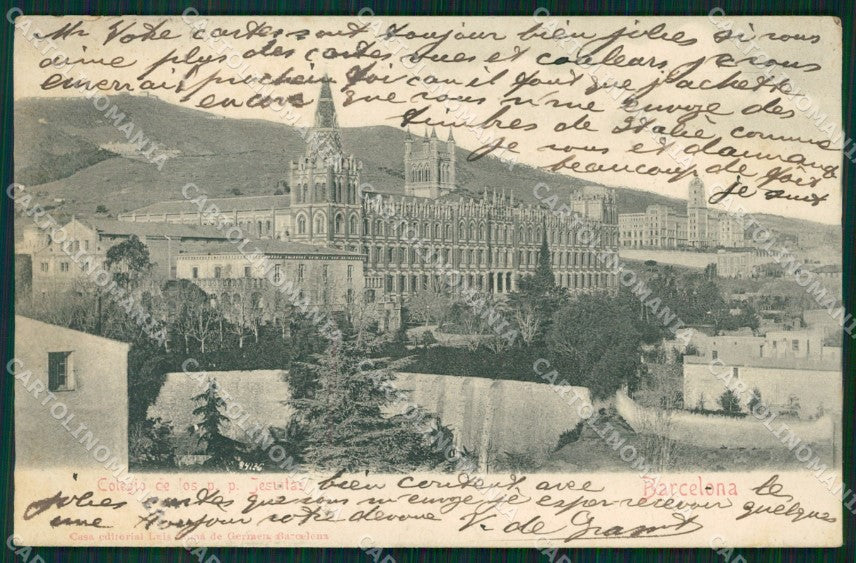 Mr Votre cartes sont toujour bien jolies si vous
aime plus des cartes vues et couleurs je vous
enverrai prochein foi car il faut que j'achette
encore que vous m'me envoge des
timbres de Italie comme
je suis et d'amant
beaucoup de
je suis
Colegio de los p. p. Jesuitas
Barcelona
bien content avec les
jolies cartes que vous m'envoge je esper recevoir quelques
une toujour votre devoue V. de
Casa editorial Luis de Germen. Barcelona
84126
CARTOLINOMANIA